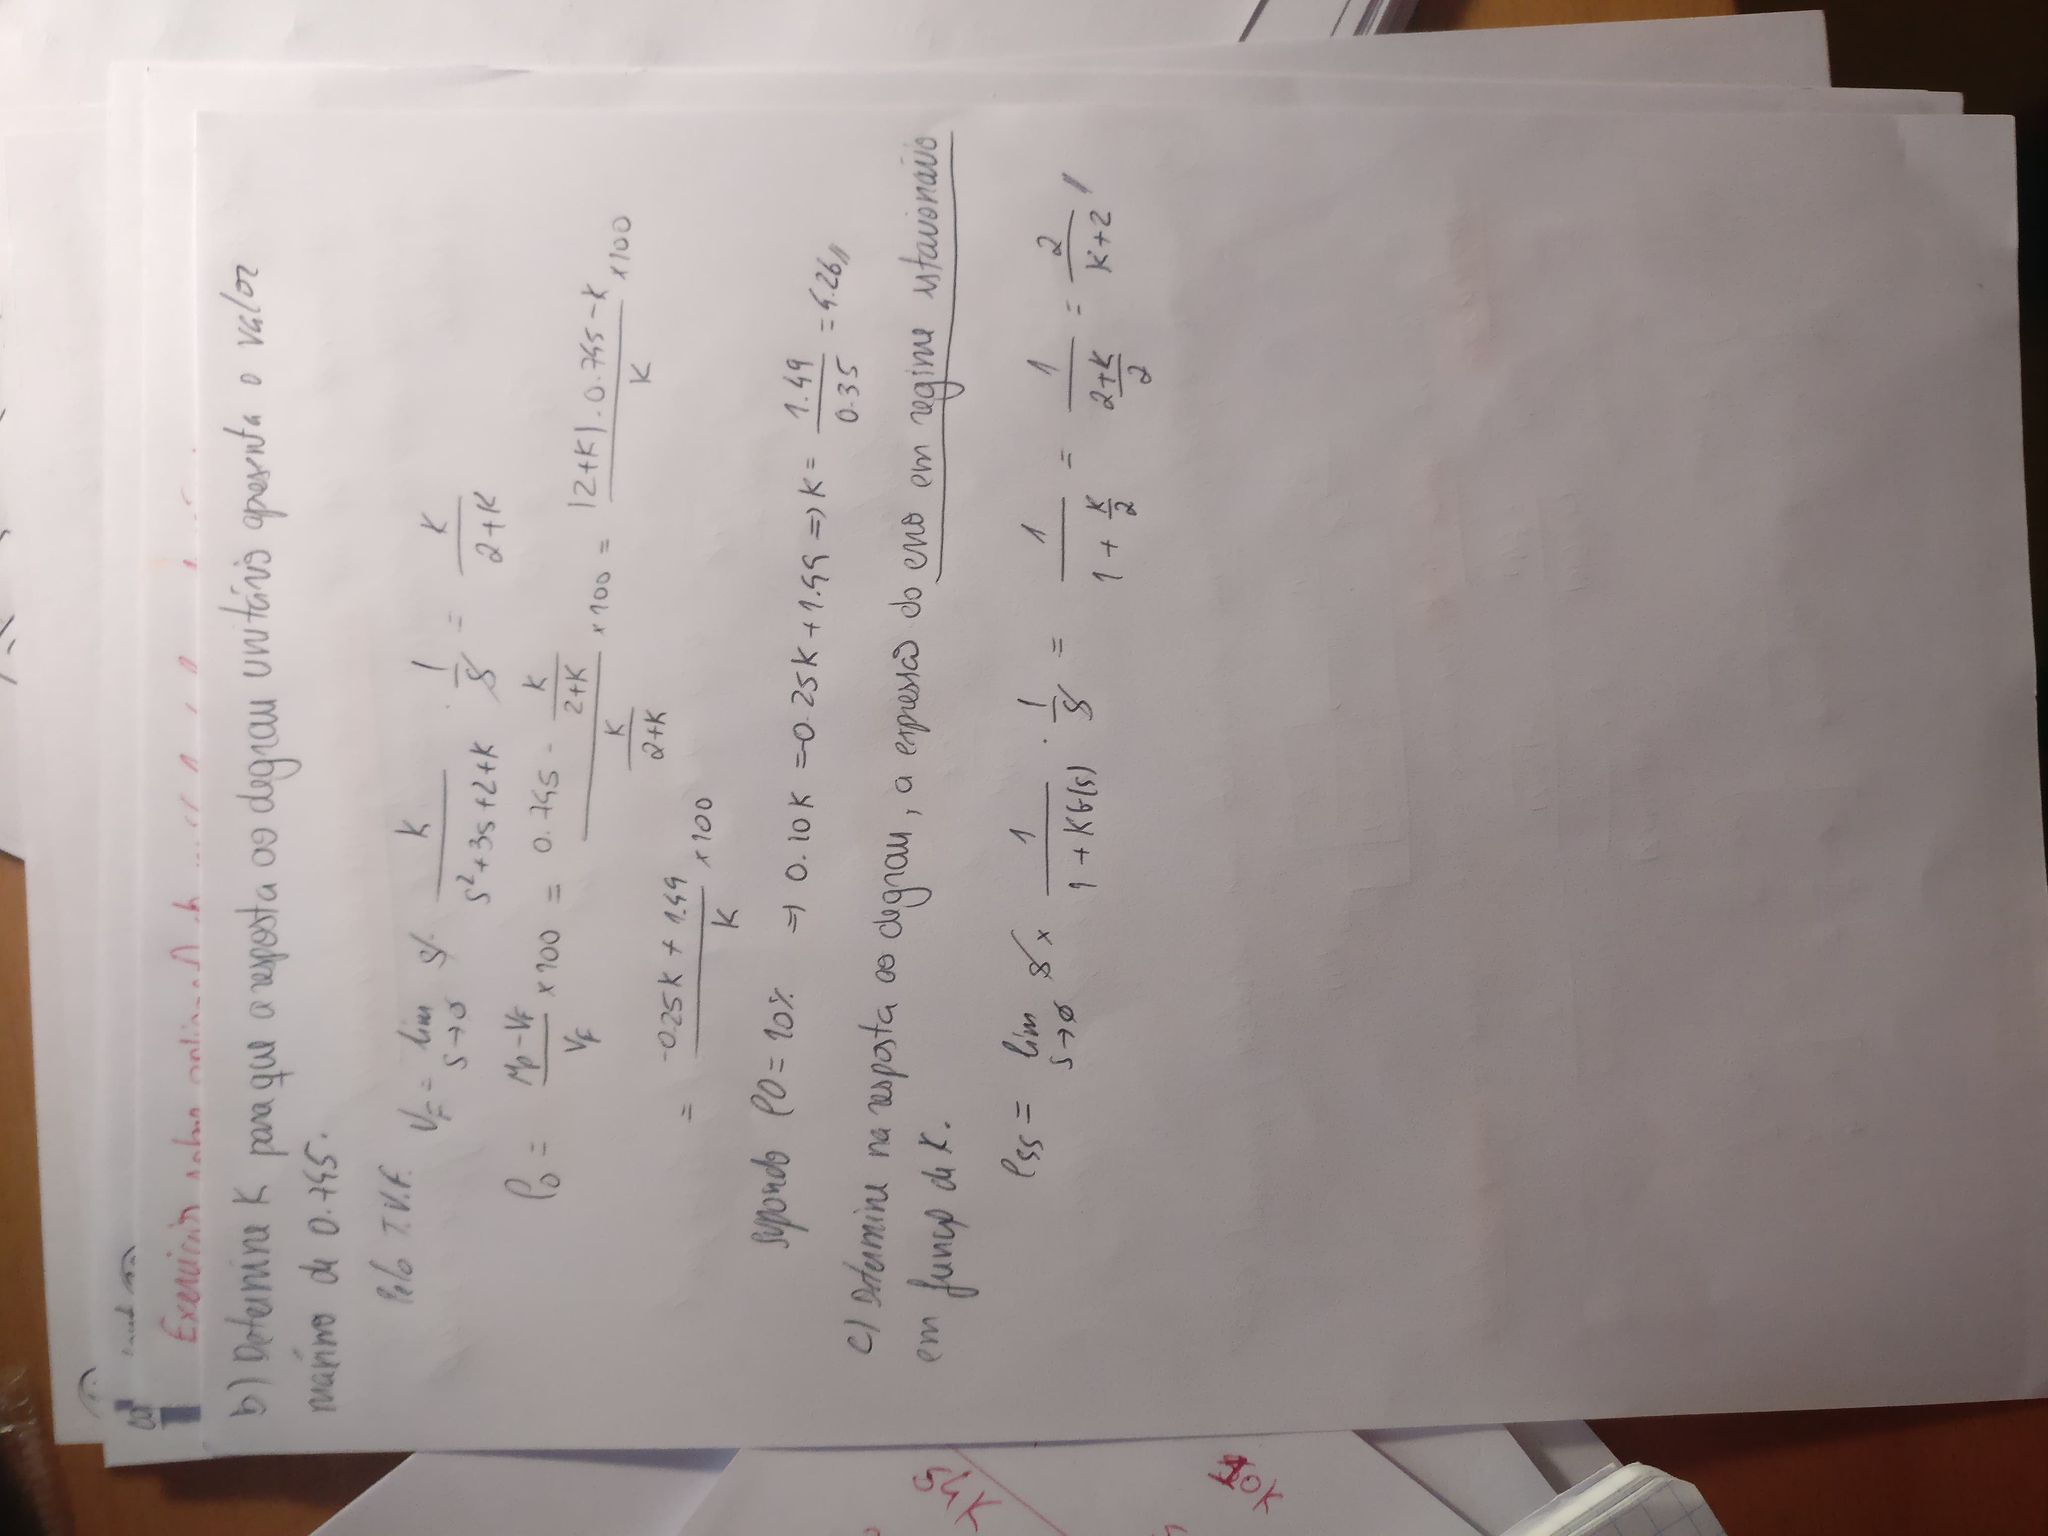 Exercícios sobre
b) Determine K para que a resposta ao degrau unitário apresenta o valor
maximo de 0.745.
Pelo T.V.F. V_F = lim_{s→0} s · K/(s²+3s+2+K) · 1/s = K/(2+K)
PO = (Mp - V_F)/V_F × 100 = (0.745 - K/(2+K))/(K/(2+K)) × 100 = ((2+K) · 0.745 - K)/K × 100
= (-0.25K + 1.49)/K × 100
Supondo PO = 10% => 0.10K = -0.25K + 1.49 => K = 1.49/0.35 = 4.26//
c) Determine na resposta ao degrau, a expressão do erro em regime estacionário
em função de K.
ess = lim_{s→0} s × 1/(1+KG(s)) · 1/s = 1/(1+K/2) = 1/((2+K)/2) = 2/(K+2) //
54K
10K